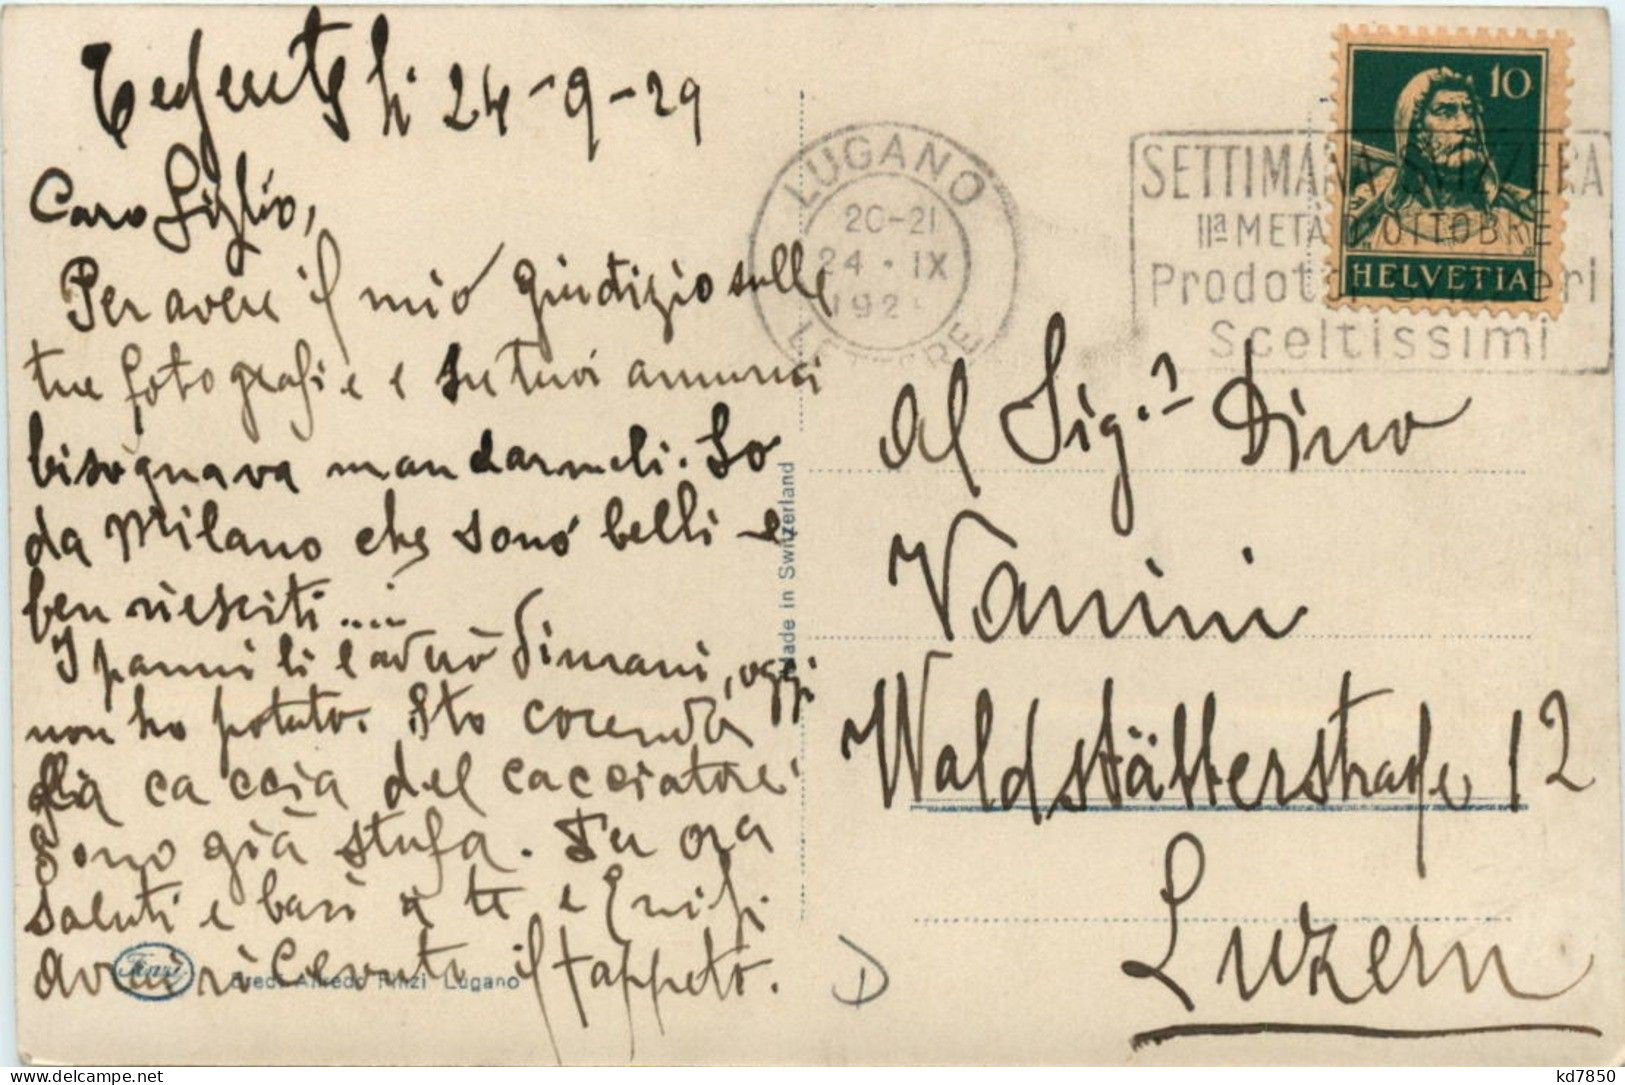 li 24-9-29
Caro figlio,
Per avere il mio giudizio sulle
tue fotografie e su tuoi annunci
bisognava mandarmeli. So
da Milano che sono belli e
ben riesciti.....
I panni li avrò dimani, oggi
non ho potuto. Sto correndo
alla caccia del cacciatore
Sono già stufa. Tu ora
saluti e baci a te e
avrai ricevuto il tappeto.
Finzi
Credi Alfredo Finzi Lugano
Made in Switzerland
LUGANO
20-21
24·IX
192
LETTERE
SETTIMANA SVIZZERA
IIª METÀ D'OTTOBRE
Prodotti Svizzeri
Sceltissimi
10
HELVETIA
Al Sig.r Dino
Vanini
Waldstätterstrasse 12
Luzern
D
kd7850